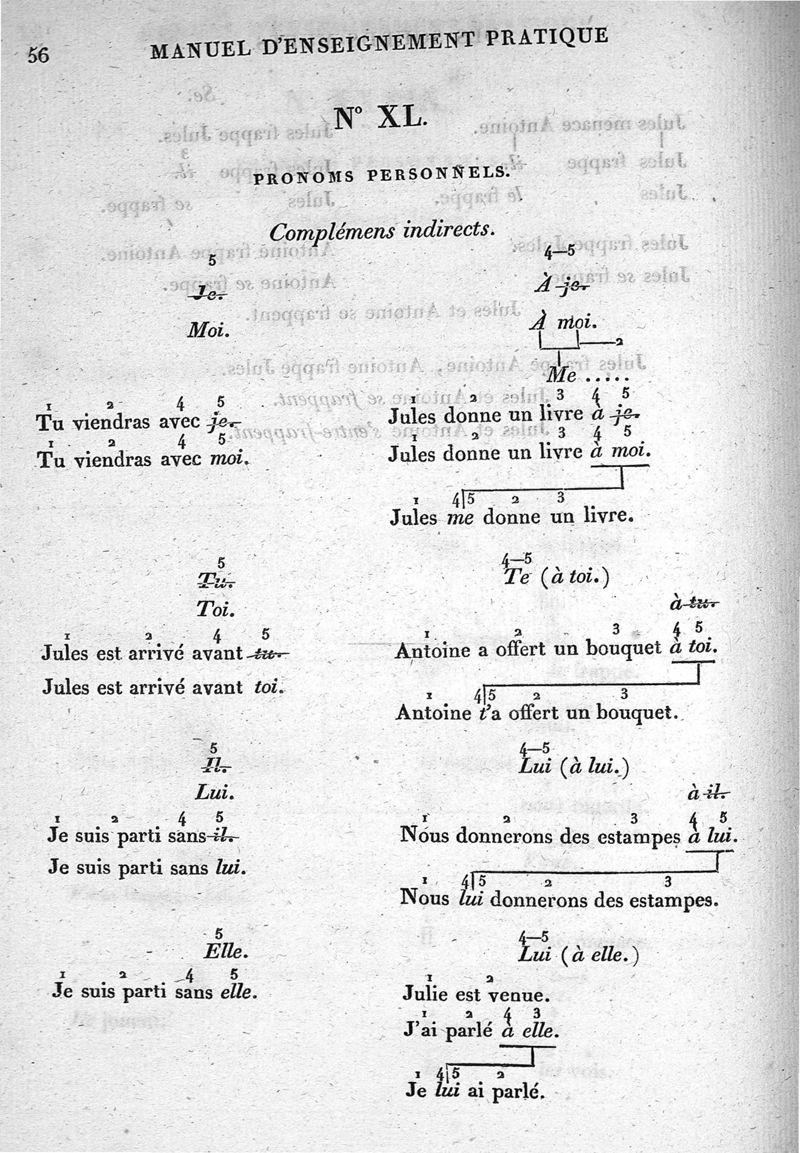 56
MANUEL D'ENSEIGNEMENT PRATIQUE
N° XL.
PRONOMS PERSONNELS.
Complémens indirects.
5
Je.
Moi.
1 2 4 5
Tu viendras avec je.
1 2 4 5
Tu viendras avec moi.
4–5
À je.
À moi.
2
Me .....
1 2 3 4 5
Jules donne un livre à je.
1 2 3 4 5
Jules donne un livre à moi.
1 4|5 2 3
Jules me donne un livre.
5
Tu.
Toi.
1 2 4 5
Jules est arrivé avant tu.
Jules est arrivé avant toi.
4–5
Te (à toi.)
à tu.
1 2 3 4 5
Antoine a offert un bouquet à toi.
1 4|5 2 3
Antoine t'a offert un bouquet.
5
Il.
Lui.
1 2 4 5
Je suis parti sans il.
Je suis parti sans lui.
4–5
Lui (à lui.)
à il.
1 2 3 4 5
Nous donnerons des estampes à lui.
1 4|5 2 3
Nous lui donnerons des estampes.
5
Elle.
1 2 4 5
Je suis parti sans elle.
4–5
Lui (à elle.)
1 2
Julie est venue.
1 2 4 3
J'ai parlé à elle.
1 4|5 2
Je lui ai parlé.